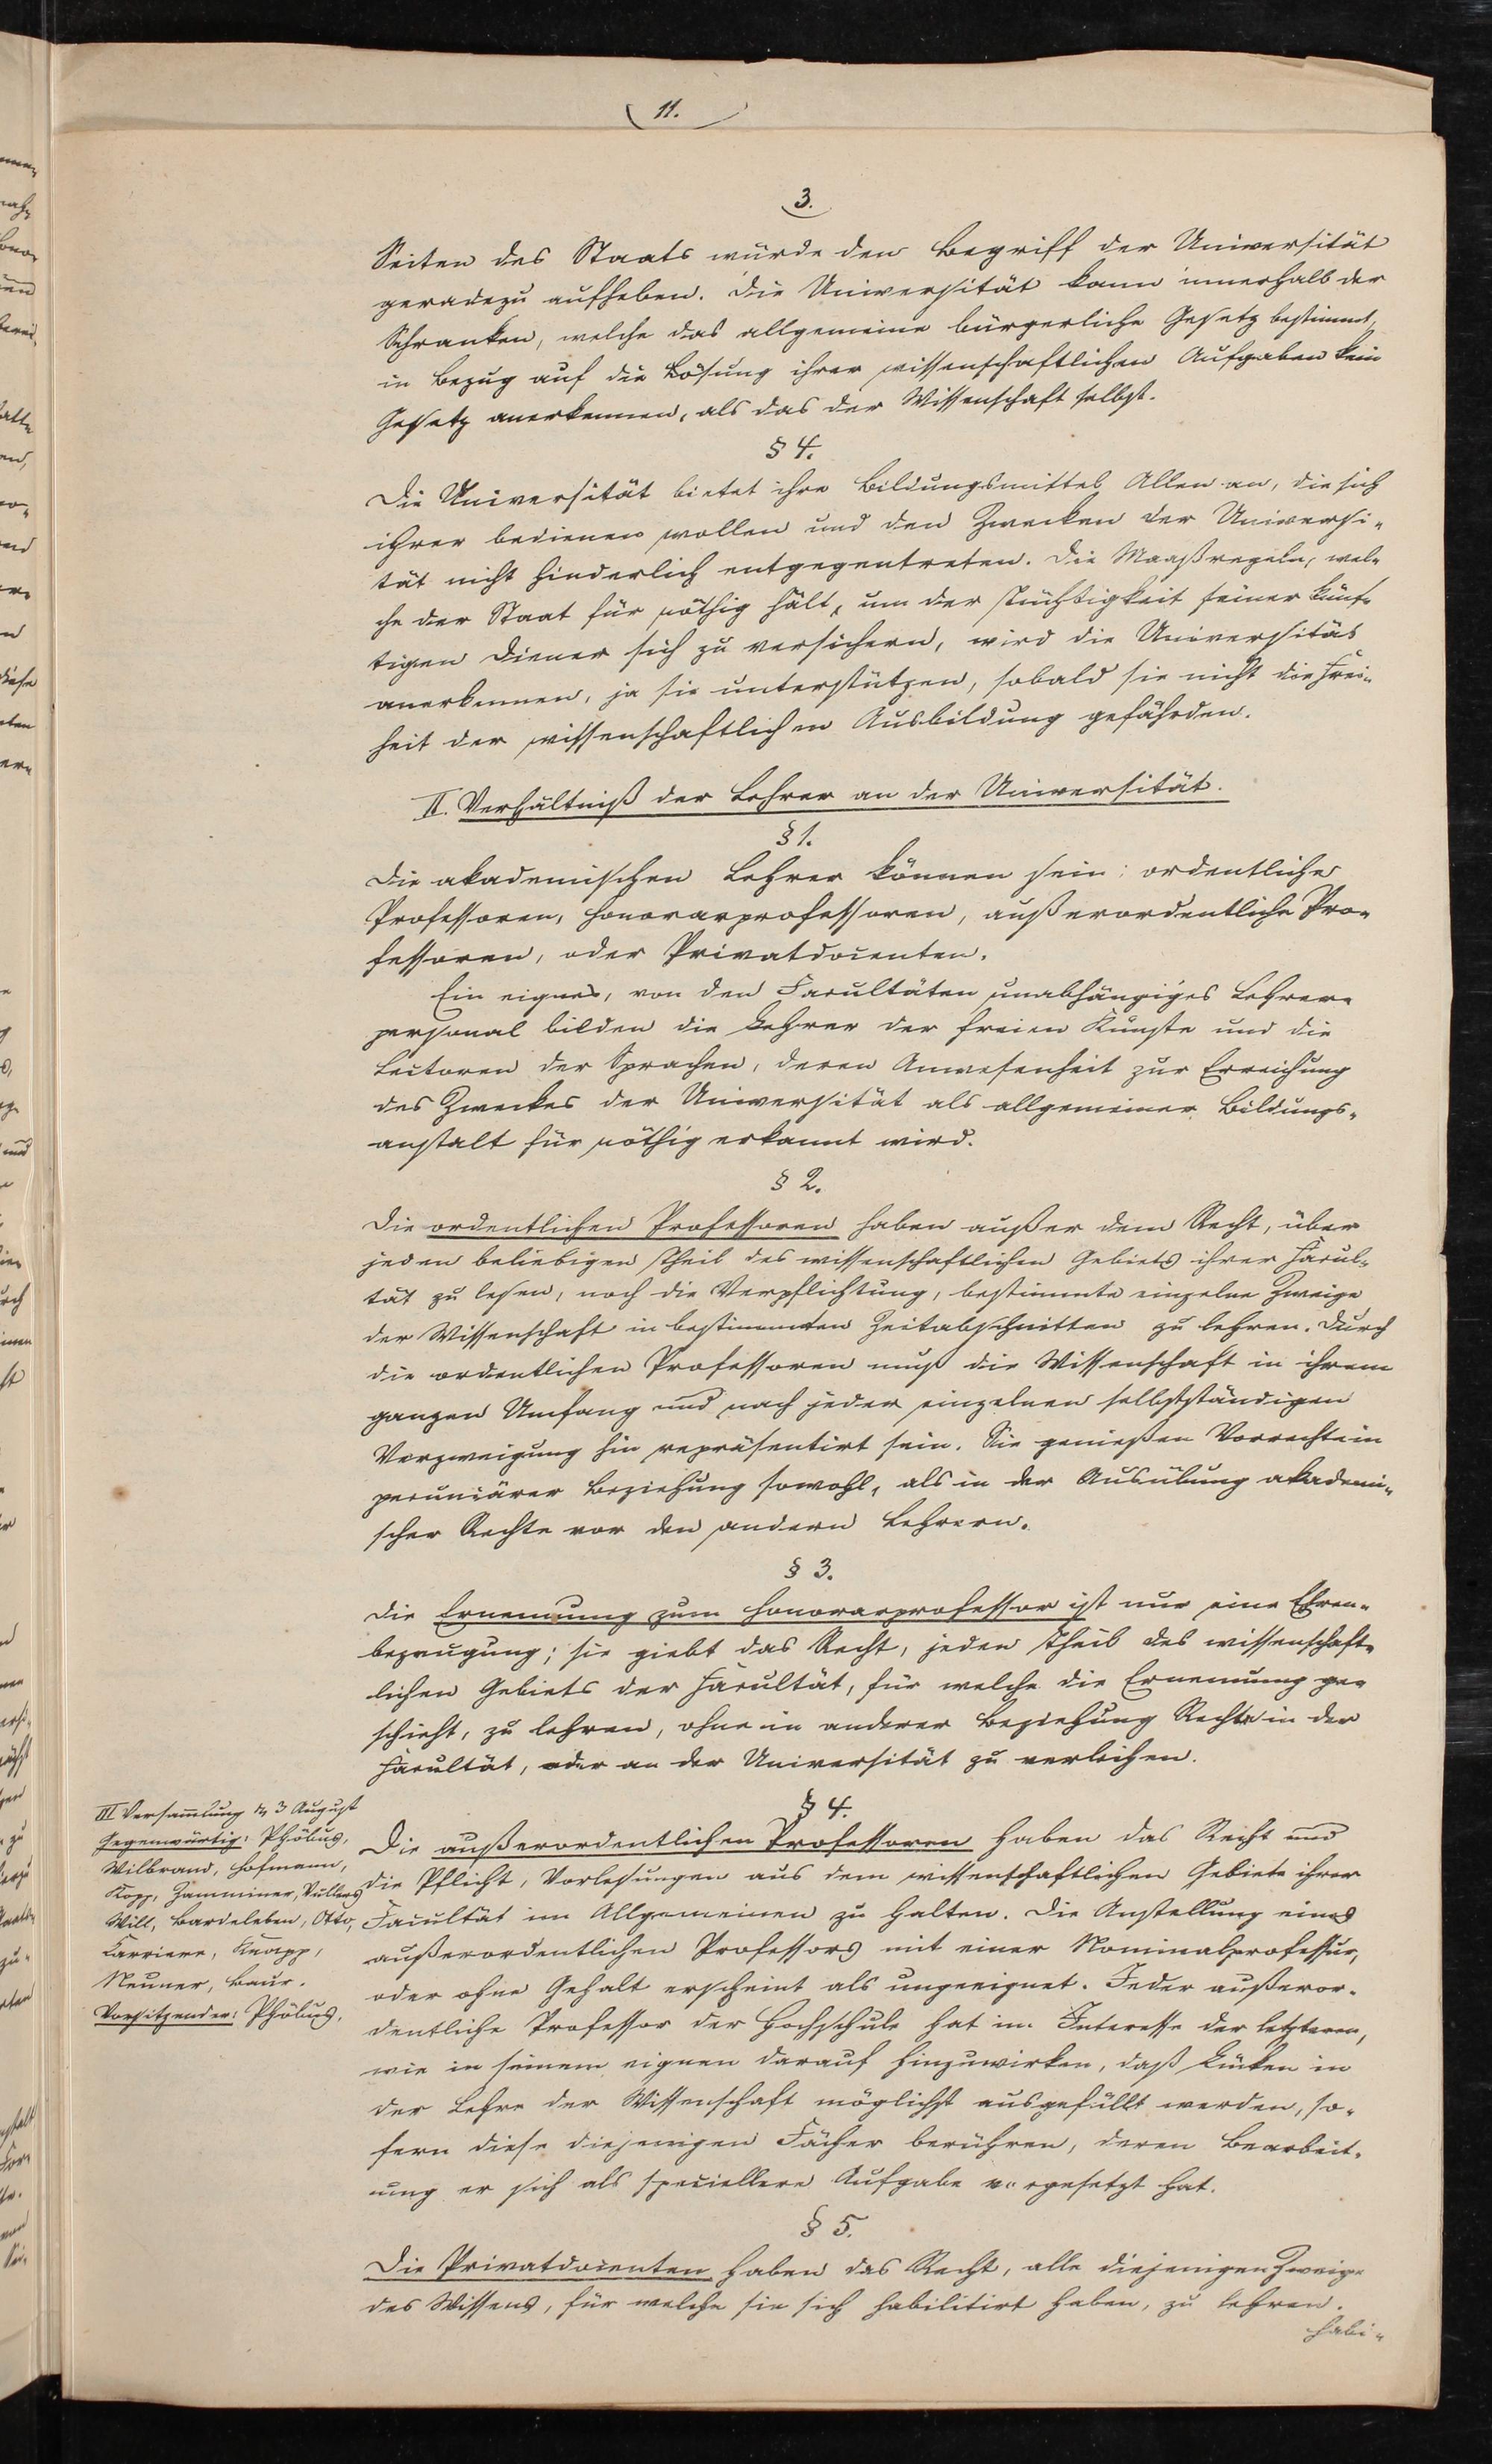 11.
3.
Seiten des Staats würde den Begriff der Universität
geradezu aufheben. Die Universität kann innerhalb der
Schranken, welche das allgemeine bürgerliche Gesetz bestimmt,
in Bezug auf die Lösung ihrer wissenschaftlichen Aufgaben kein
Gesetz anerkennen, als das der Wissenschaft selbst.
§ 4.
Die Universität bietet ihre Bildungsmittel Allen an, die sich
ihrer bedienen wollen und den Zwecken der Universi-
tät nicht hinderlich entgegentreten. Die Maaßregeln, wel-
che der Staat für nöthig hält, um der Tüchtigkeit seiner künf-
tigen Diener sich zu versichern, wird die Universität
anerkennen, ja sie unterstützen, sobald sie nicht die Frei-
heit der wissenschaftlichen Ausbildung gefährden.
II. Verhältniß der Lehrer an der Universität.
§ 1.
Die akademischen Lehrer können sein: ordentliche
Professoren, Honorarprofessoren, außerordentliche Pro-
fessoren, oder Privatdocenten.
Ein eignes, von den Facultäten unabhängiges Lehrer-
personal bilden die Lehrer der freien Künste und die
Lectoren der Sprachen, deren Anwesenheit zur Erreichung
des Zweckes der Universität als allgemeiner Bildungs-
anstalt für nöthig erkannt wird.
§ 2.
Die ordentlichen Professoren haben außer dem Recht, über
jeden beliebigen Theil des wissenschaftlichen Gebiets ihrer Facul-
tät zu lesen, noch die Verpflichtung, bestimmte einzelne Zweige
der Wissenschaft in bestimmten Zeitabschnitten zu lehren. Durch
die ordentlichen Professoren muß die Wissenschaft in ihrem
ganzen Umfang und nach jeder einzelnen selbstständigen
Verzweigung hin repräsentirt sein. Sie genießen Vorrechte in
pecuniärer Beziehung sowohl, als in der Ausübung akademi-
scher Rechte vor den andern Lehrern.
§ 3.
Die Ernennung zum Honorarprofessor ist nur eine Ehren-
bezeugung; sie giebt das Recht, jeden Theil des wissenschaft-
lichen Gebiets der Facultät, für welche die Ernennung ge-
schieht, zu lehren, ohne in anderer Beziehung Rechte in der
Facultät, oder an der Universität zu verleihen.
III Versammlung 3 August
Gegenwärtig: Phöbus,
Wilbrand, Hofmann,
Kopp, Zamminer, Vullers
Will, Bardeleben, Otto,
Carriere, Knapp,
Neuner, Baur.
Vorsitzender: Phöbus.
§ 4.
Die außerordentlichen Professoren haben das Recht und
die Pflicht, Vorlesungen aus dem wissenschaftlichen Gebiete ihrer
Facultät im Allgemeinen zu halten. Die Anstellung eines
außerordentlichen Professors mit einer Nominalprofessur,
oder ohne Gehalt erscheint als ungeeignet. Jeder außeror-
dentliche Professor der Hochschule hat im Interesse der letzteren,
wie in seinem eignen darauf hinzuwirken, daß Lücken in
der Lehre der Wissenschaft möglichst ausgefüllt werden, so-
fern diese diejenigen Fächer berühren, deren Bearbeit-
ung er sich als speciellere Aufgabe vorgesetzt hat.
§ 5.
Die Privatdocenten haben das Recht, alle diejenigen Zweige
des Wissens, für welche sie sich habilitirt haben, zu lehren.
Habi-